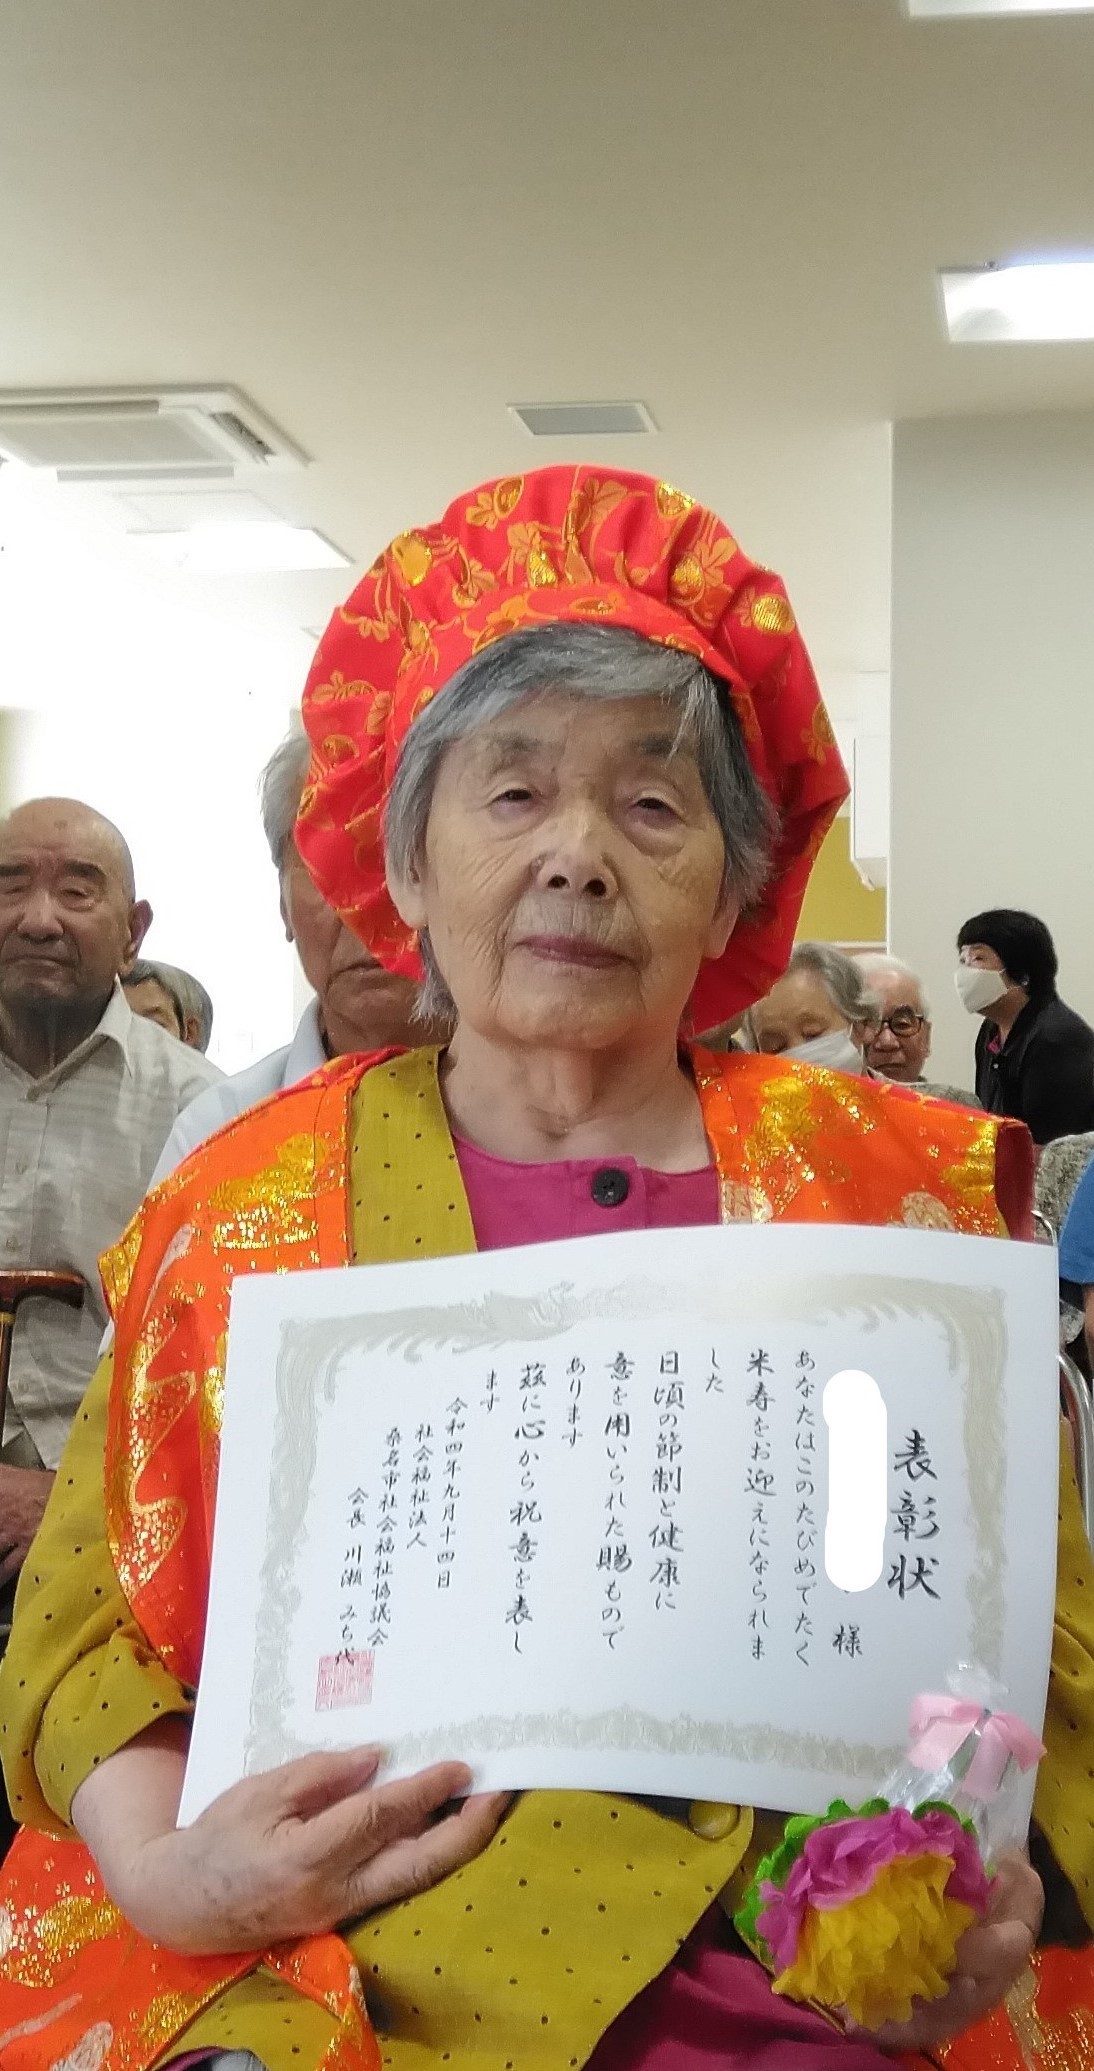 表彰状
様
あなたはこのたびめでたく
米寿をお迎えになられま
した
日頃の節制と健康に
意を用いられた賜もので
あります
茲に心から祝意を表し
ます
令和四年九月十四日
社会福祉法人
桑名市社会福祉協議会
会長 川瀬 みち代